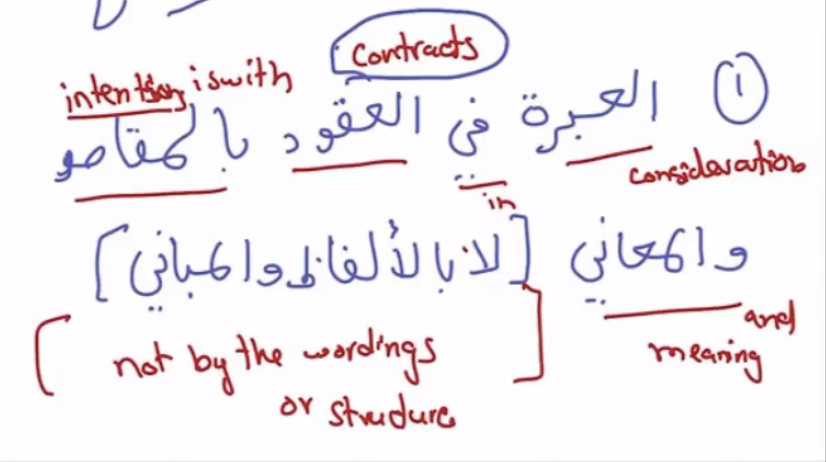 contracts
intention is with
١ العبرة في العقود بالمقاصد
consideration
in
والمعاني [لا بالألفاظ والمباني]
and
meaning
[not by the wordings]
or structure